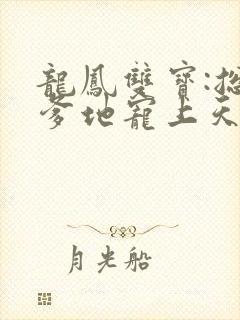 龍鳳雙寶:總
爹地寵上天
月光船